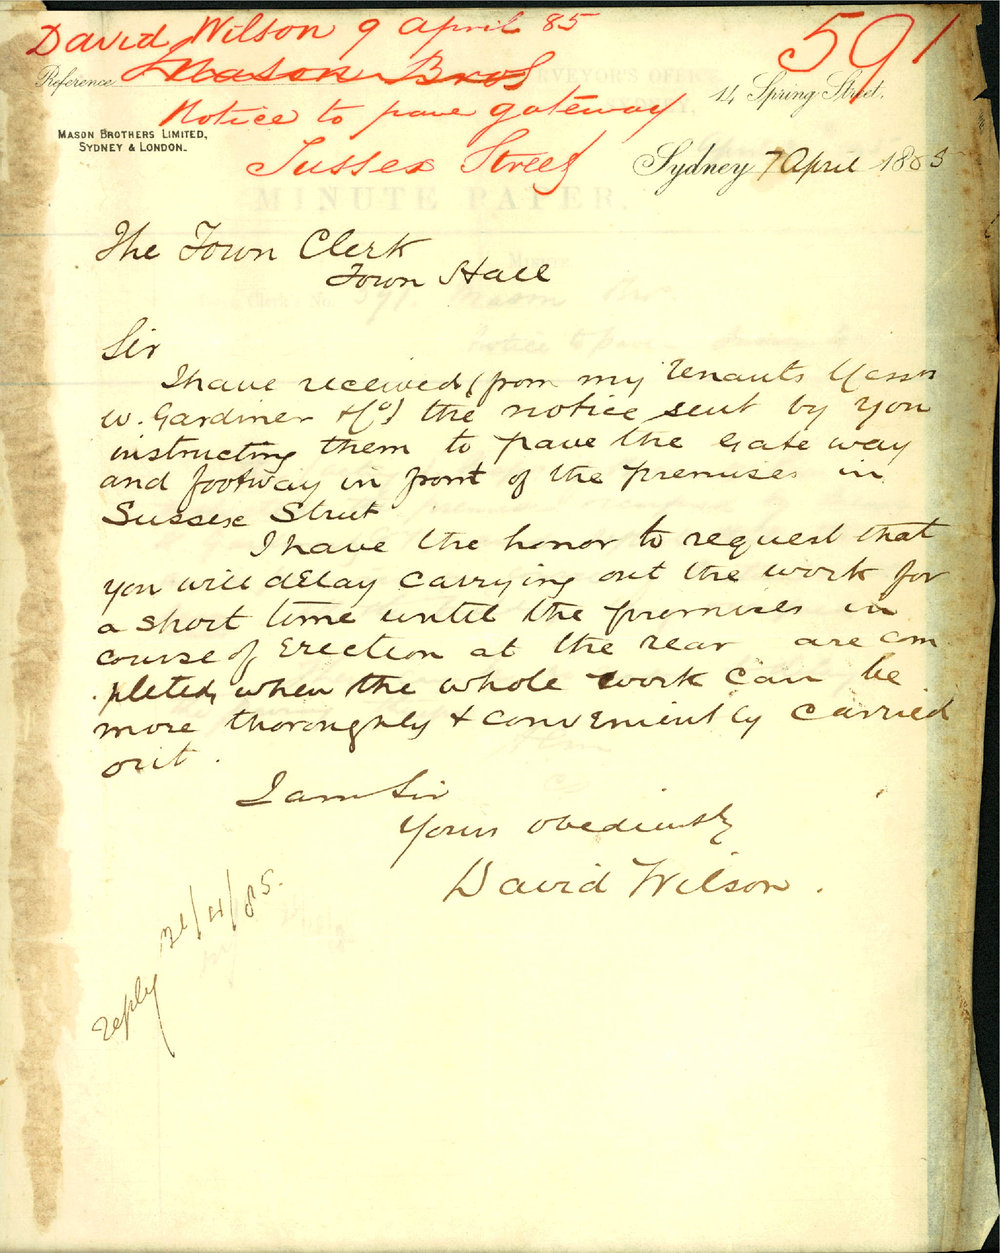 David Wilson 9 April 85
591
Reference
Mason Bros
14 Spring Street,
Notice to pave gateway
MASON BROTHERS LIMITED,
SYDNEY & LONDON.
Sussex Street
Sydney 7 April 1885
MINUTE PAPER.
The Town Clerk
Town Hall
Sir
I have received (from my tenants Messrs
W. Gardiner & Co) the notice sent by you
instructing them to pave the Gate way
and footway in front of the premises in
Sussex Street
I have the honor to request that
you will delay carrying out the work for
a short time until the premises in
course of Erection at the rear are com
pleted, when the whole work can be
more thoroughly & conveniently carried
out.
I am Sir
Yours obediently
David Wilson.
reply 21/4/85.